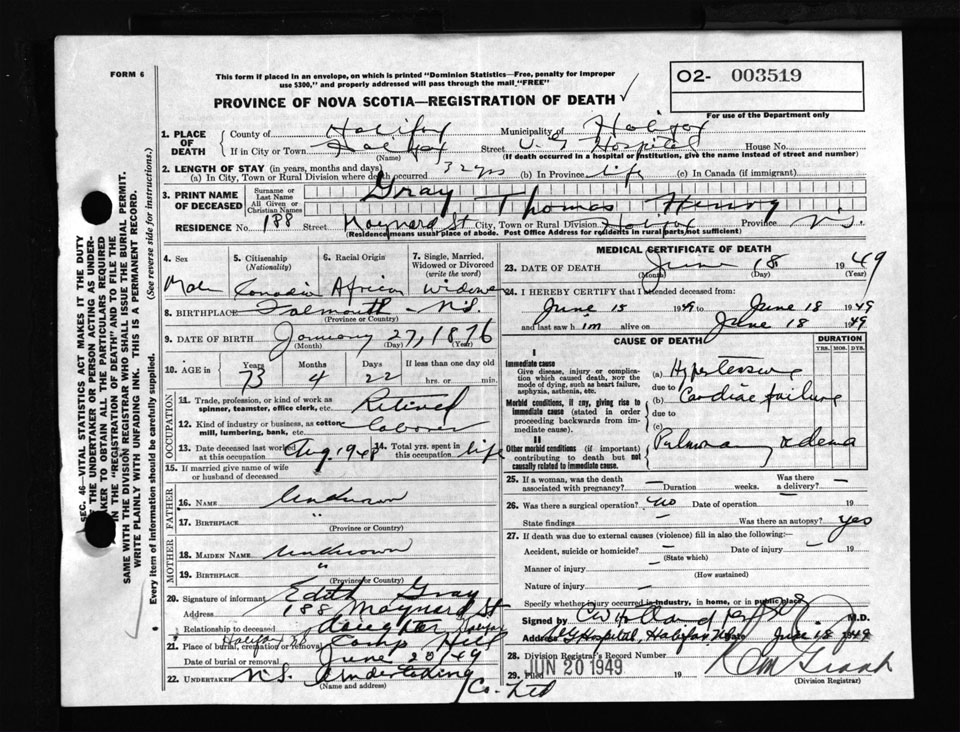 FORM 6
This form if placed in an envelope, on which is printed "Dominion Statistics—Free, penalty for improper
use $300," and properly addressed will pass through the mail "FREE"
02- 003519
For use of the Department only
PROVINCE OF NOVA SCOTIA—REGISTRATION OF DEATH ✓
1. PLACE OF DEATH
County of Halifax Municipality of Halifax
If in City or Town Halifax Street V. G Hospital House No.
(Name) (If death occurred in a hospital or institution, give the name instead of street and number)
2. LENGTH OF STAY (in years, months and days)
(a) In City, Town or Rural Division where death occurred 32 yrs (b) In Province life (c) In Canada (if immigrant)
3. PRINT NAME OF DECEASED
Surname or Last Name Gray
All Given or Christian Names Thomas Henry
RESIDENCE No. 188 Street Maynard St City, Town or Rural Division Halifax Province N.S.
(Residence means usual place of abode. Post Office Address for residents in rural parts not sufficient)
4. Sex
Male
5. Citizenship (Nationality)
Canadian
6. Racial Origin
African
7. Single, Married, Widowed or Divorced (write the word)
Widower
8. BIRTHPLACE Falmouth - N.S.
(Province or Country)
9. DATE OF BIRTH January 27, 1876
(Month) (Day) (Year)
10. AGE in Years Months Days If less than one day old
73 4 22 hrs. or min.
OCCUPATION
11. Trade, profession, or kind of work as spinner, teamster, office clerk, etc. Retired
12. Kind of industry or business, as cotton mill, lumbering, bank, etc. labourer
13. Date deceased last worked at this occupation Aug 1948
14. Total yrs. spent in this occupation life
15. If married give name of wife or husband of deceased
FATHER
16. NAME Unknown
17. BIRTHPLACE "
(Province or Country)
MOTHER
18. MAIDEN NAME Unknown
19. BIRTHPLACE "
(Province or Country)
20. Signature of informant Edith Gray
Address 188 Maynard St
Halifax
Relationship to deceased daughter
21. Place of burial, cremation or removal Halifax NS Camp Hill
Date of burial or removal June 20 '49
22. UNDERTAKER N.S. Undertaking Co. Ltd
(Name and address)
MEDICAL CERTIFICATE OF DEATH
23. DATE OF DEATH June 18 1949
(Month) (Day) (Year)
24. I HEREBY CERTIFY that I attended deceased from:
June 15 1949 to June 18 1949
and last saw him alive on June 18 1949
CAUSE OF DEATH
DURATION
YRS. MOS. DYS.
I
Immediate cause
Give disease, injury or complication which caused death, Not the mode of dying, such as heart failure, asphyxia, asthenia, etc.
(a) Hypertensive
due to
Morbid conditions, if any, giving rise to immediate cause (stated in order proceeding backwards from immediate cause).
(b) Cardiac failure
due to
(c)
II
Other morbid conditions (if important) contributing to death but not causally related to immediate cause.
Pulmonary oedema
25. If a woman, was the death associated with pregnancy? — Duration weeks. Was there a delivery? —
26. Was there a surgical operation? no Date of operation 19
State findings — Was there an autopsy? yes
27. If death was due to external causes (violence) fill in also the following:—
Accident, suicide or homicide? — Date of injury — 19
(State which)
Manner of injury —
(How sustained)
Nature of injury —
Specify whether injury occurred in industry, in home, or in public place
Signed by M.D.
Address V G Hospital, Halifax Date June 18 1949
28. Division Registrar's Record Number
29. Filed JUN 20 1949 19
(Division Registrar)
SEC. 46—VITAL STATISTICS ACT MAKES IT THE DUTY
OF THE UNDERTAKER OR PERSON ACTING AS UNDERTAKER TO OBTAIN ALL THE PARTICULARS REQUIRED
IN THE "REGISTRATION OF DEATH" AND TO FILE THE
SAME WITH THE DIVISION REGISTRAR WHO SHALL ISSUE THE BURIAL PERMIT.
WRITE PLAINLY WITH UNFADING INK. THIS IS A PERMANENT RECORD.
Every item of information should be carefully supplied. (See reverse side for instructions.)